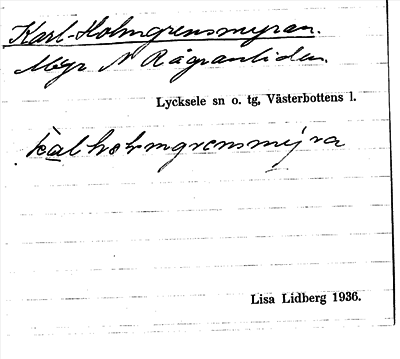 Karl-Holmgrensmyran.
Myr N Rågranliden.
Lycksele sn o. tg, Västerbottens l.
kalholmgrensmyra
Lisa Lidberg 1936.